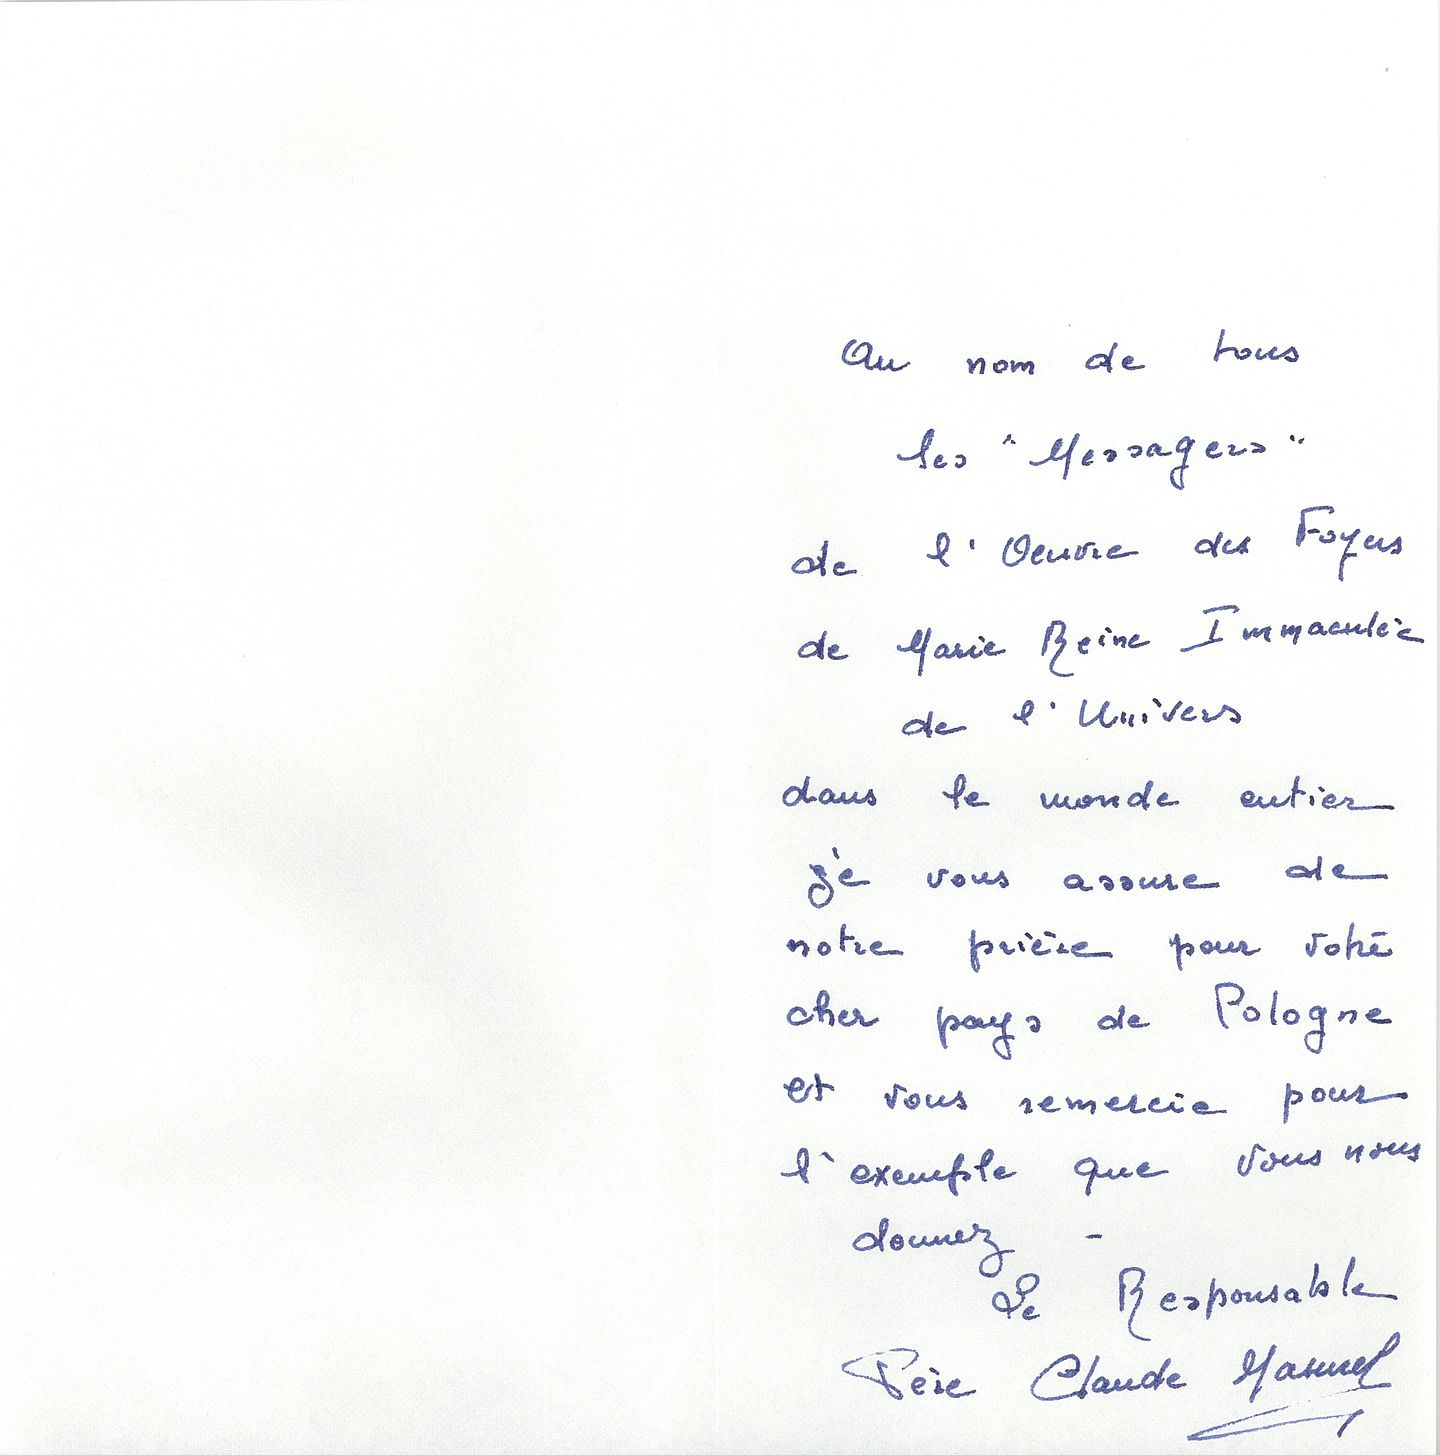 Au nom de tous
les "Messagers"
de l'Oeuvre des Foyers
de Marie Reine Immaculée
de l'Univers
dans le monde entier
je vous assure de
notre prière pour votre
cher pays de Pologne
et vous remercie pour
l'exemple que vous nous
donnez -
Le Responsable
Père Claude